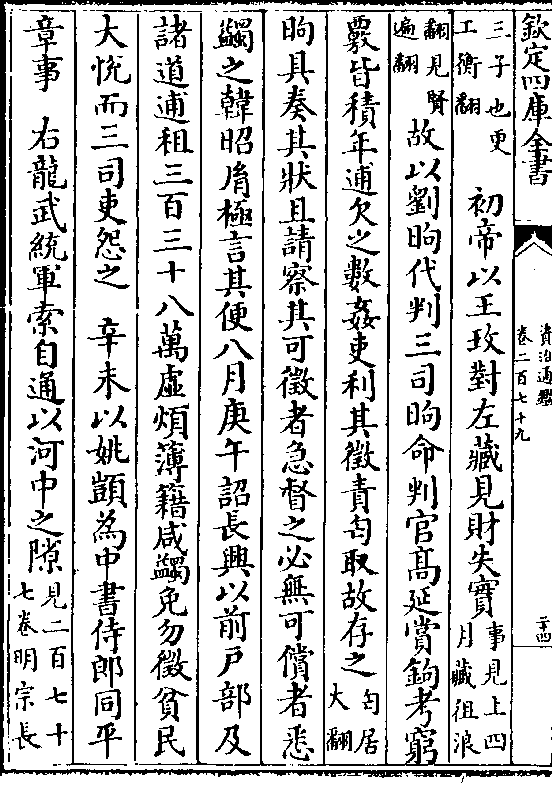 欽定四庫全書
資治通鑑
卷二百七十九
二十四
三子也更
工衡翻
初帝以王玫對左藏見財失實
事見上四
月藏徂浪
翻見賢
遍翻
故以劉昫代判三司昫命判官高延賞鉤考窮
覈皆積年逋欠之數姦吏利其徵責匄取故存之
匄居
大翻
昫具奏其狀且請察其可徵者急督之必無可償者悉
蠲之韓昭胤極言其便八月庚午詔長興以前戶部及
諸道逋租三百三十八萬虛煩簿籍咸蠲免勿徵貧民
大悅而三司吏怨之 辛未以姚顗為中書侍郎同平
章事 右龍武統軍索自通以河中之隙
見二百七十
七卷明宗長